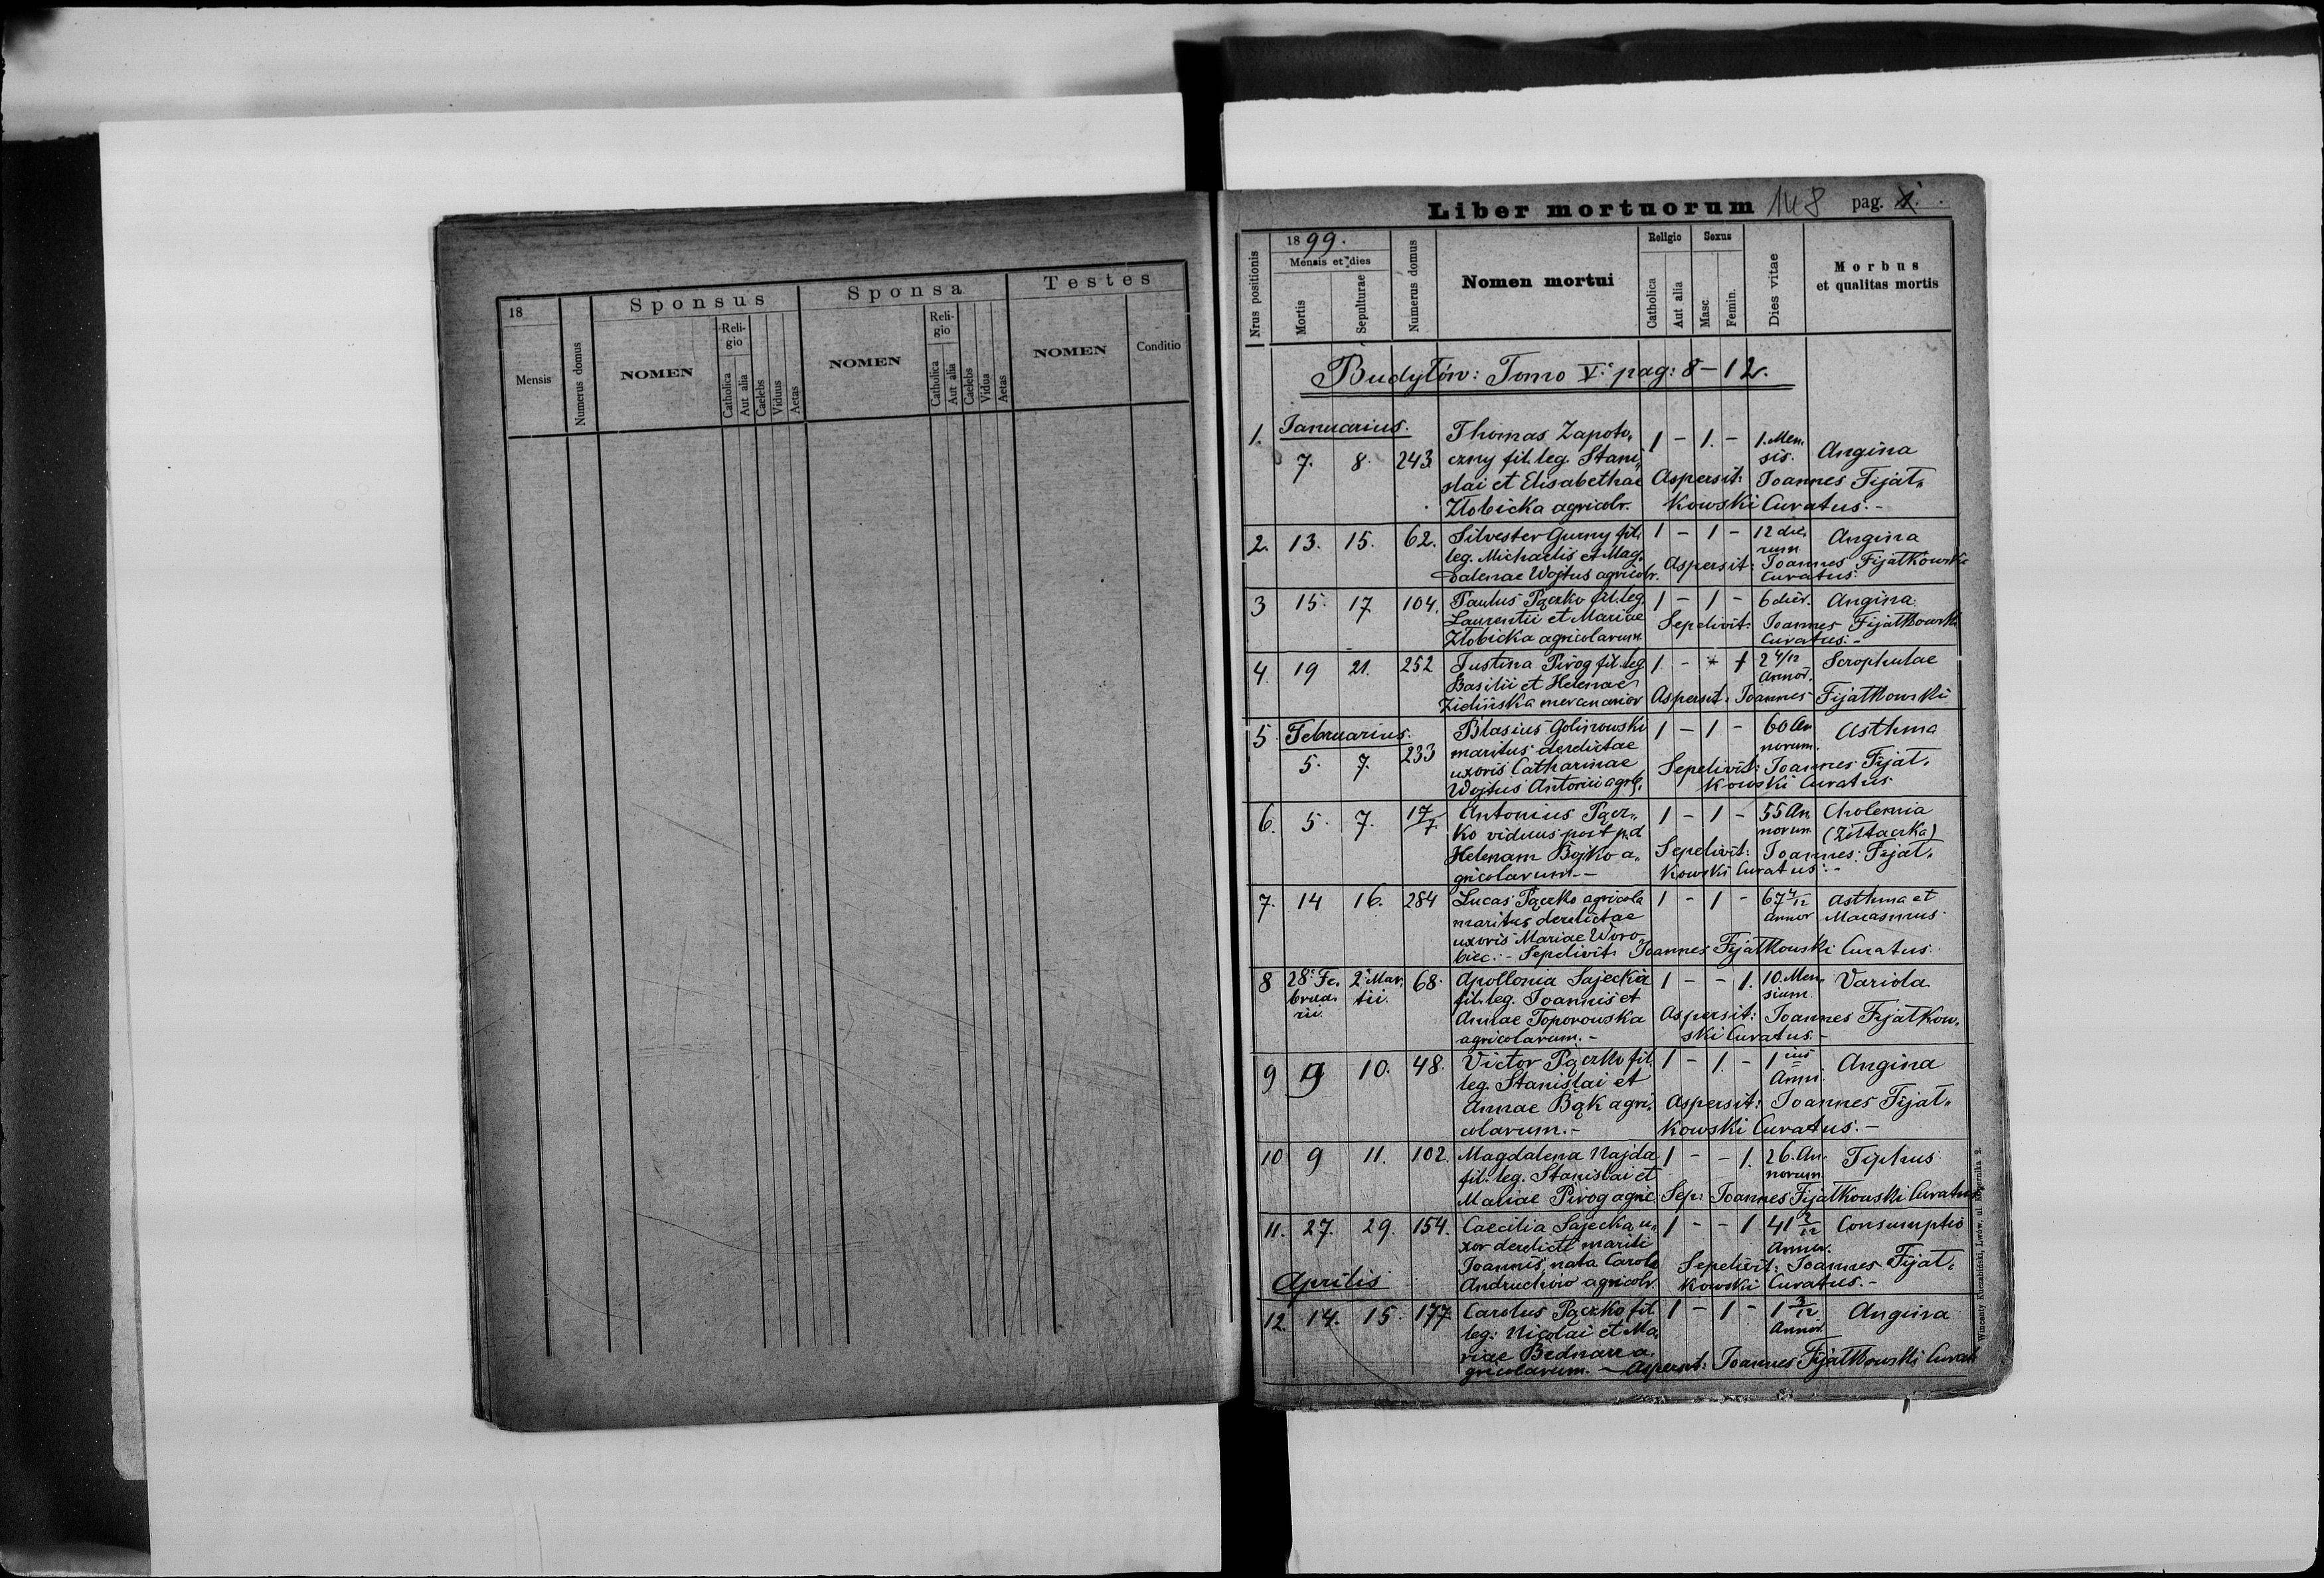 18
Mensis
Numerus domus
Sponsus
NOMEN
Reli-
gio
Catholica
Aut alia
Caelebs
Viduus
Aetas
Sponsa
NOMEN
Reli-
gio
Catholica
Aut alia
Caelebs
Vidua
Aetas
Testes
NOMEN
Conditio
Liber mortuorum 148 pag. 1.
Nrus positionis
1899.
Mensis et dies
Mortis
Sepulturae
Numerus domus
Nomen mortui
Religio
Catholica
Aut alia
Sexus
Masc.
Femin.
Dies vitae
Morbus
et qualitas mortis
Budyłów: Tomo V. pag: 8-12.
1. Januarius. Thomas Zapoto„ 1 - 1. - 1. Men„
7. 8. 243 czny fil. leg. Stani„ sis. Angina
slai et Elisabethae Aspersit: Joannes Fijał„
Złobicka agricolr. kowski Curatus.-
2. 13. 15. 62. Silvester Gurny fil. 1 - 1 - 12 die„ Angina
leg. Michaelis et Mag„ rum
dalenae Wojtus agricolr. Aspersit: Joannes Fijałkowski
Curatus.
3 15. 17 104. Paulus Pączko fil. leg. 1 - 1 - 6 dier. Angina
Laurentii et Mariae Sepelivit: Joannes Fijałkowski
Złobicka agricolarum. Curatus.-
4. 19 21. 252 Justina Pirog fil. leg 1 - 1 2 4/12 Scrophulae
Basilii et Helenae Annor.
Aspersit: Joannes Fijałkowski
5. Februarius. Blasius Golinowski 1 - 1 - 60 An„ Asthma
5. 7. 233 maritus derelictae norum.
uxoris Catharinae Sepelivit: Joannes Fijał„
Wojtus Antonii agrl. kowski Curatus
6. 5. 7. 17/7 Antonius Pącz„ 1 - 1 - 55 An„ Cholemia
ko viduus post p.d norum (Żółtaczka)
Helenam Bojko a„ Sepelivit: Joannes Fijał„
gricolarum.- kowski Curatus.-
7. 14 16. 284 Lucas Pączko agricola 1 - 1 - 67 4/12 Asthma et
maritus derelictae annor Marasmus.
uxoris Mariae Woro„
biec.- Sepelivit: Joannes Fijałkowski Curatus.
8 28. Fe„ 2. Mar„ 68. Apollonia Sajecka 1 - - 1. 10. Men„ Variola
brua„ tii. fil. leg. Joannis et sium.
rii. Annae Toporowska Aspersit: Joannes Fijałkow„
agricolarum.- ski Curatus.-
9 9 10. 48. Victor Pączko fil. 1 - 1. - 1 ius Angina
leg. Stanislai et Anni.
Annae Bąk agri„ Aspersit: Joannes Fijał„
colarum.- kowski Curatus.-
10 9 11. 102. Magdalena Najda 1 - - 1. 26. An„ Tiphus
fil. leg. Stanislai et norum
Mariae Pirog agric. Sep: Joannes Fijałkowski Curatus
11. 27. 29. 154. Caecilia Sajecka u„ 1 - - 1 41 2/12 Consumptio
xor derelicti mariti Annor.
Joannis, nata Caroli Sepelivit: Joannes Fijał„
Aprilis Andruchow agricolr. kowski Curatus.-
12. 14. 15. 177 Carolus Pączko fil. 1 - 1 - 1 3/12 Angina
leg: Nicolai et Ma„ Annor
riae Bednarz a„
gricolarum.- Aspersit: Joannes Fijałkowski Curat
Wincenty Kuczabiński, Lwów, ul. Kopernika 2.